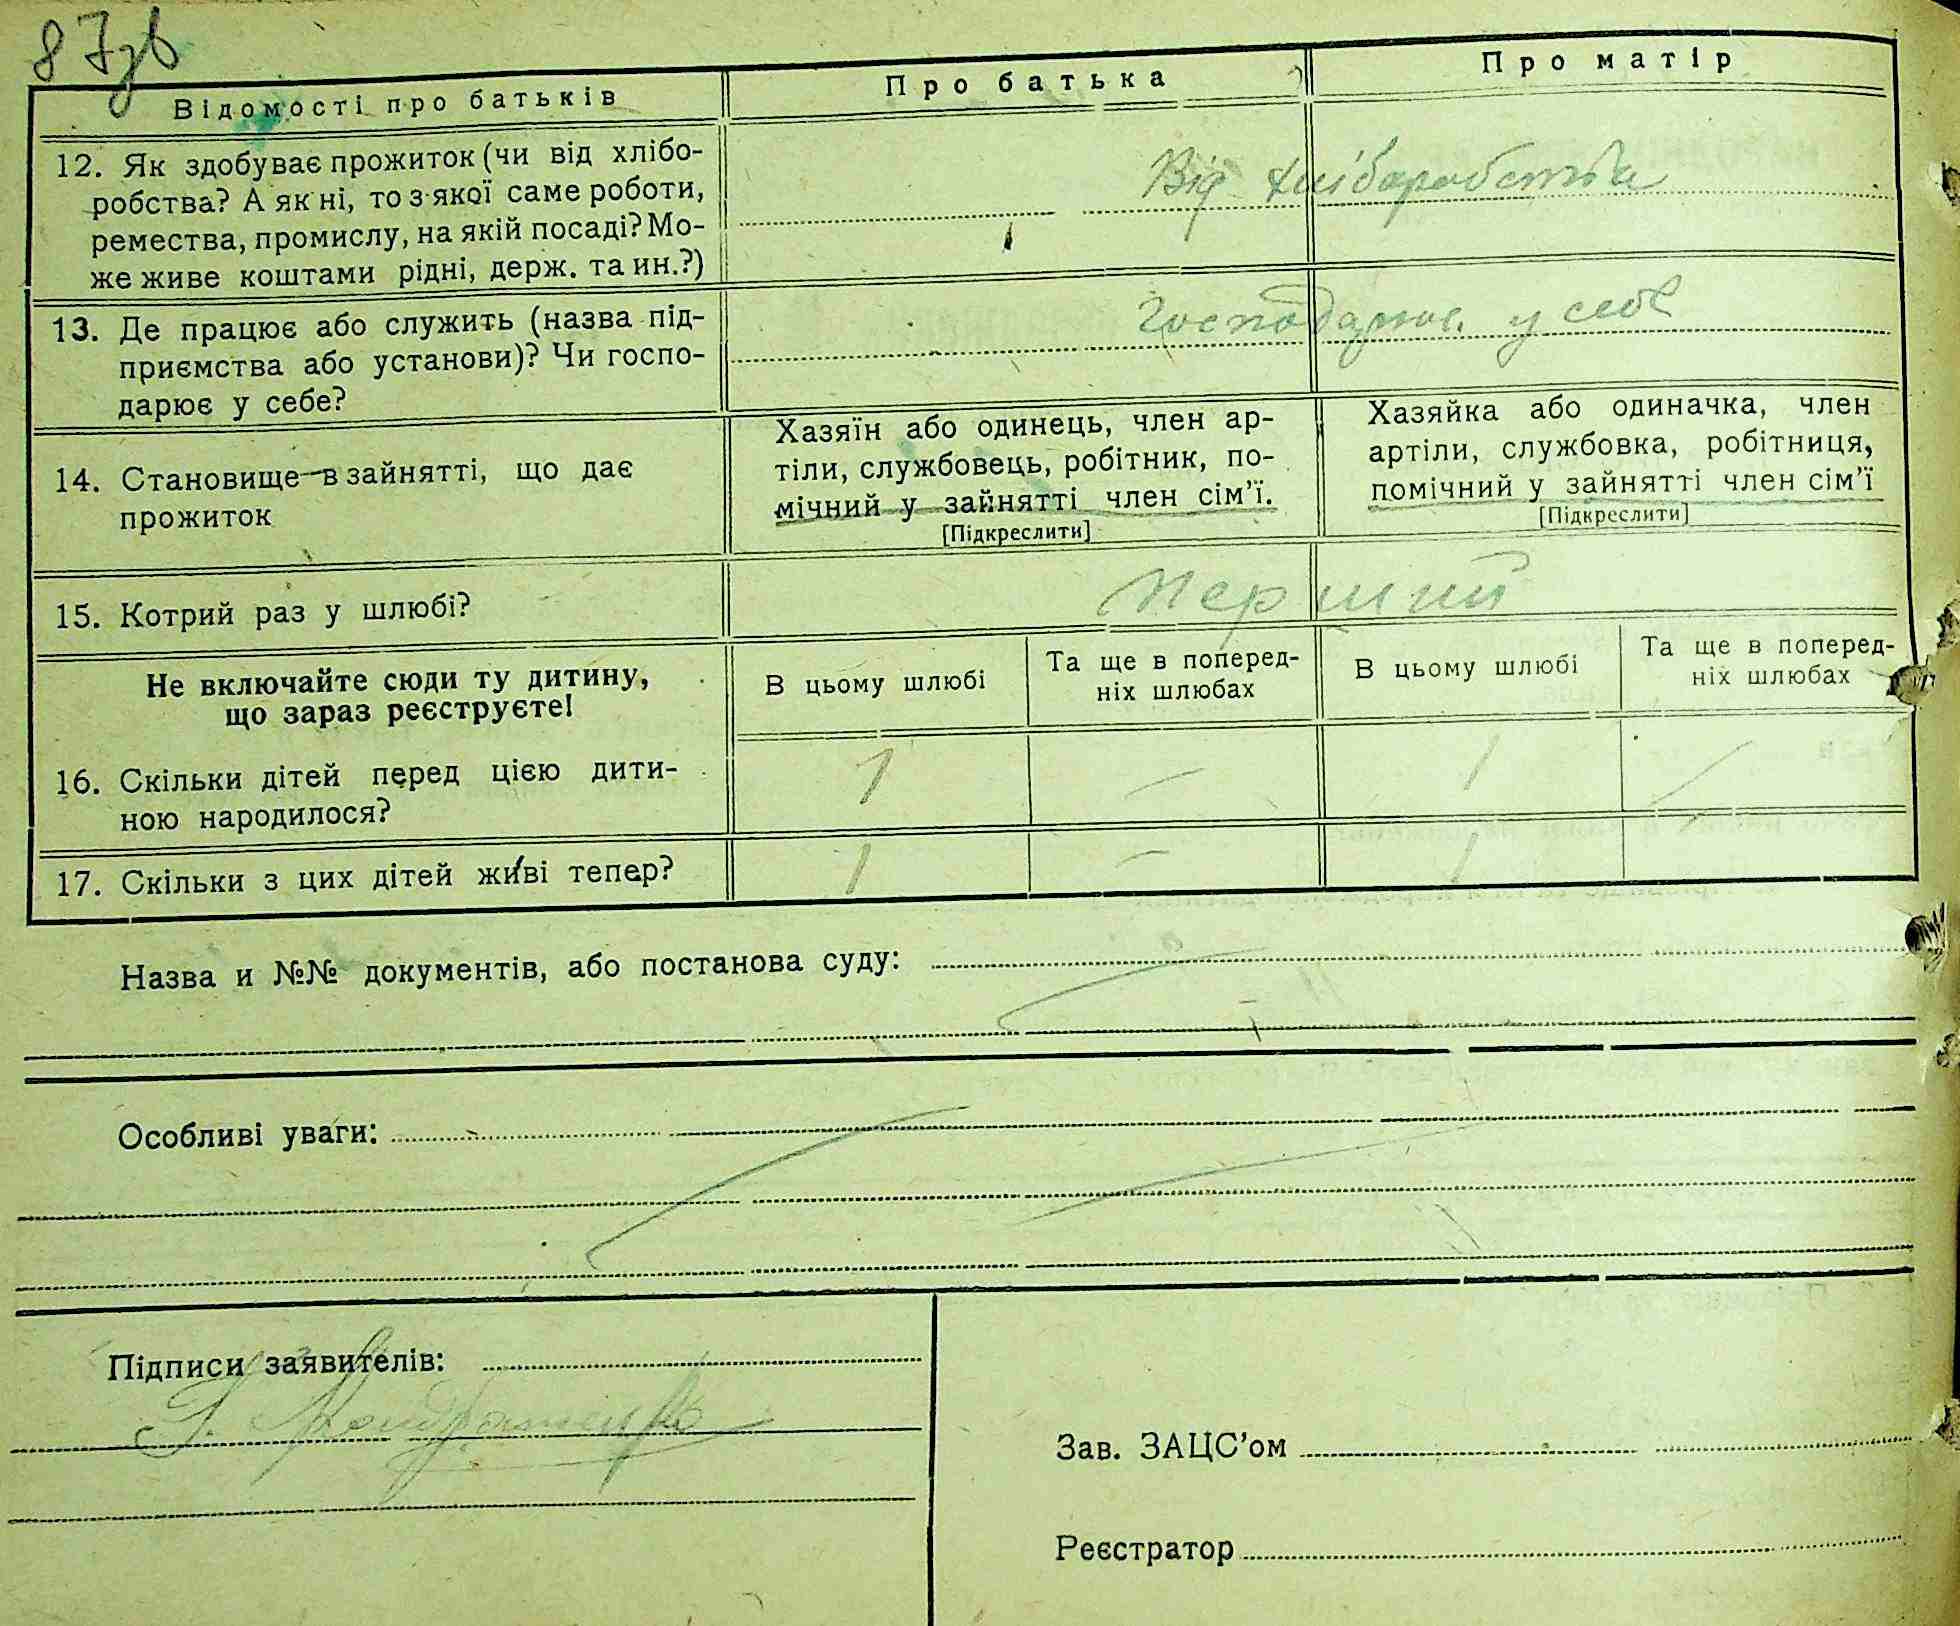 87зв
Відомості про батьків
Про батька
Про матір
12. Як здобуває прожиток (чи від хлібо-
робства? А як ні, то з якої саме роботи,
ремества, промислу, на якій посаді? Мо-
же живе коштами рідні, держ. та ин.?)
Від хлібаробства
13. Де працює або служить (назва під-
приємства або установи)? Чи госпо-
дарює у себе?
Господарює у себе
14. Становище в зайнятті, що дає
прожиток
Хазяїн або одинець, член ар-
тіли, службовець, робітник, по-
мічний у зайнятті член сім'ї.
[Підкреслити]
Хазяйка або одиначка, член
артіли, службовка, робітниця,
помічний у зайнятті член сім'ї
[Підкреслити]
15. Котрий раз у шлюбі?
Перший
Не включайте сюди ту дитину,
що зараз реєструєте!
В цьому шлюбі
Та ще в поперед-
ніх шлюбах
В цьому шлюбі
Та ще в поперед-
ніх шлюбах
16. Скільки дітей перед цією дити-
ною народилося?
1 — 1 —
17. Скільки з цих дітей живі тепер?
1 — 1
Назва и №№ документів, або постанова суду:
Особливі уваги:
Підписи заявителів:
Кондратенко
Зав. ЗАЦС'ом
Реєстратор